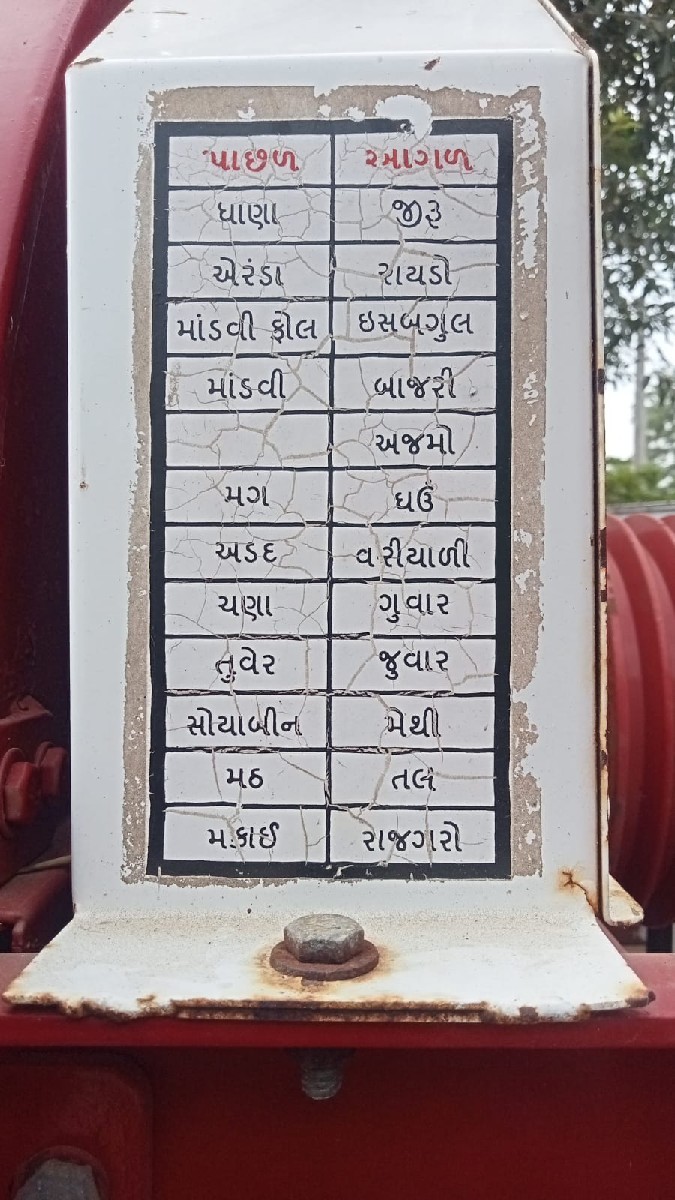 પાછળ આગળ
ધાણા જીરૂ
એરંડા રાયડો
માંડવી ફોલ ઇસબગુલ
માંડવી બાજરી
અજમો
મગ ઘઉં
અડદ વરીયાળી
ચણા ગુવાર
તુવેર જુવાર
સોયાબીન મેથી
મઠ તલ
મકાઈ રાજગરો